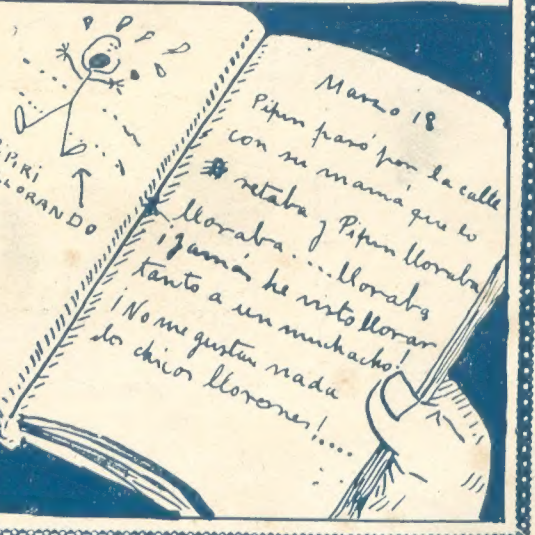 PIRI
LLORANDO
Marzo 18
Pipiri pasó por la calle
con su mamá que lo
retaba y Pipiri lloraba
lloraba....lloraba
¡Jamás he visto llorar
tanto a un muchacho!
¡No me gustan nada
los chicos llorones!....